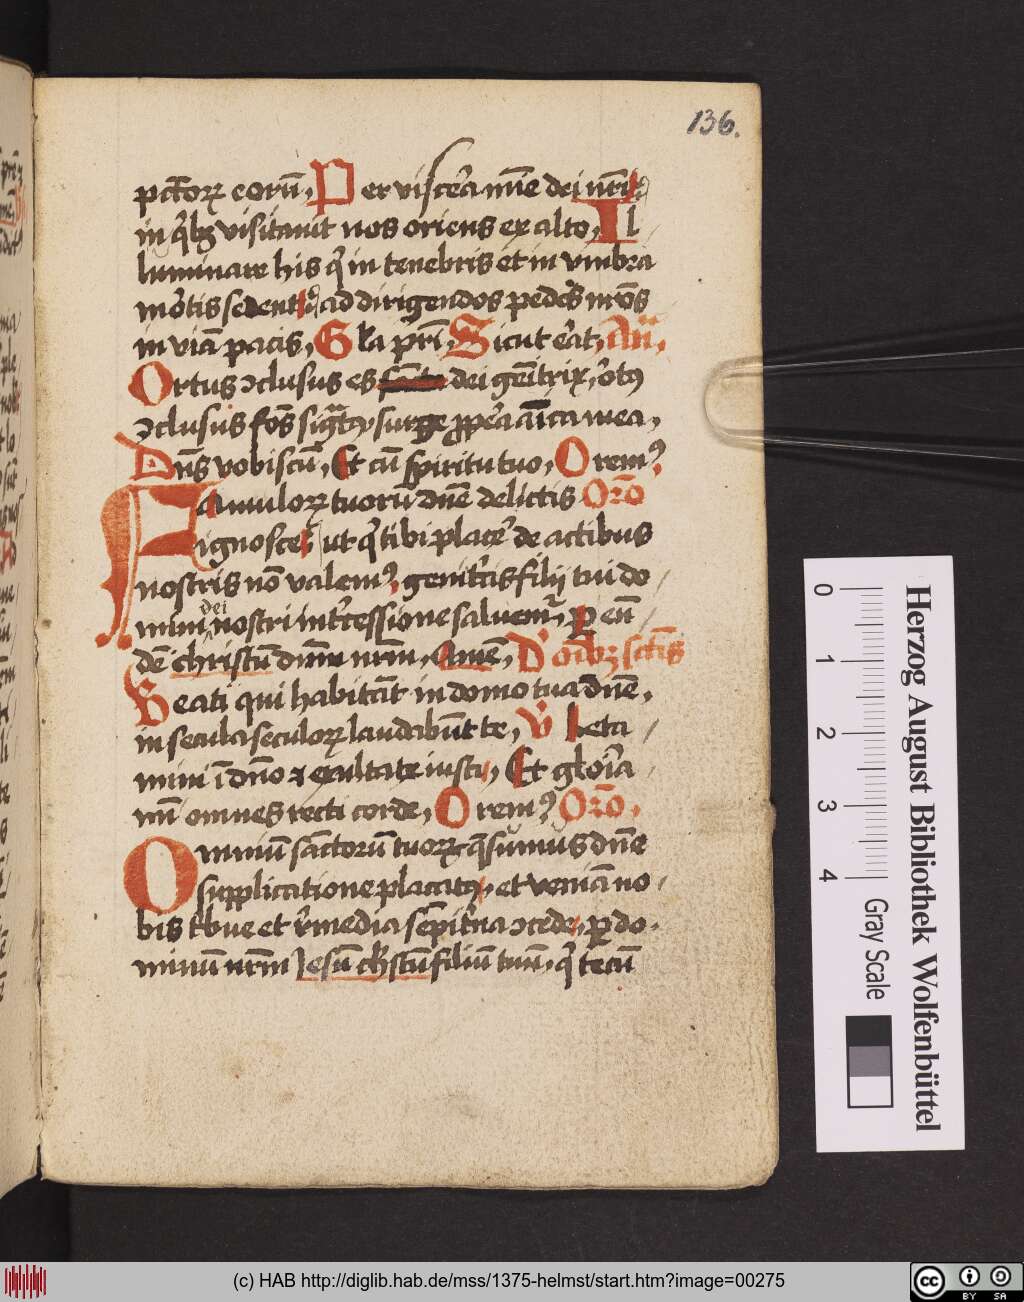 136.
pctoꝝ eorū, Per viscera mīe dei nrī
in qͥbꝫ visitauit nos oriens ex alto, Il
luminare his qͥ in tenebris et in vmbra
mortis sedent, ad dirigendos pedes nrōs
in viā pacis, Gla pri, Sicut erat, Añ,
Ortus ↄclusus es dei genitrix,
ↄclusus fōs surge ꝓpera amica mea,
Dns vobiscū, Et cū spiritu tuo, Orem⁹
Famuloꝝ tuorū dn̄e delictis Oro
ignosce, ut qͥ tibi placere de actibus
nostris nō valem⁹, genitricis filij tui do
dei
mini nostri intercessione saluemur, ꝑ eūn
dē christū dnm nrm, Amē, D' oībꝫ sctis
Beati qui habitāt in domo tua dn̄e,
in secula seculoꝝ laudabūt te, V Leta
mini ī dn̄o et exultate iusti, Et gloria
mī omnes recti corde, Orem⁹ Oro,
Omniū sāctorū tuoꝝ qs̄umus dn̄e
supplicatione placatꝰ, et veniā no
bis tbue et remedia sempitna ↄcede, ꝑ do
minū nrm Jesū chrstū filiū tuū, qͥ tecū
0 1 2 3 4
Gray Scale
Herzog August Bibliothek Wolfenbüttel
(c) HAB http://diglib.hab.de/mss/1375-helmst/start.htm?image=00275
cc BY SA